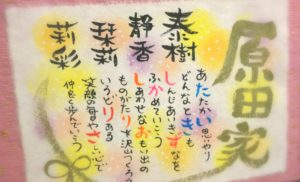 原田家
泰樹
静香
栞莉
莉彩
あたたかい思いやり
どんなときも
しんじあいきずなを
ふかめていこう
しあわせなおもい出の
ものがたりを沢山つくろう
いろどりある
笑顔の毎日やさしい心で
仲良く歩んでいこう